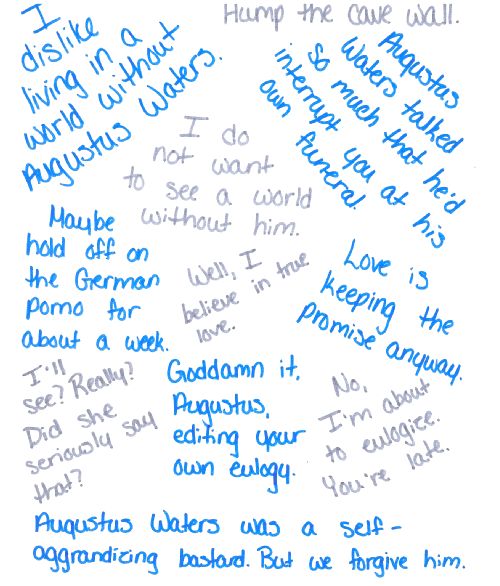 I
dislike
living in a
world without
Augustus Waters.
Hump the cave wall.
Augustus
Waters talked
so much that he'd
interrupt you at his
own funeral.
I do
not want
to see a world
without him.
Maybe
hold off on
the German
Porno for
about a week.
Well, I
believe in true
love.
Love is
keeping the
promise anyway.
I'll
see? Really?
Did she
seriously say
that?
Goddamn it,
Augustus,
editing your
own eulogy.
No,
I'm about
to eulogize.
You're late.
Augustus Waters was a self-
aggrandizing bastard. But we forgive him.